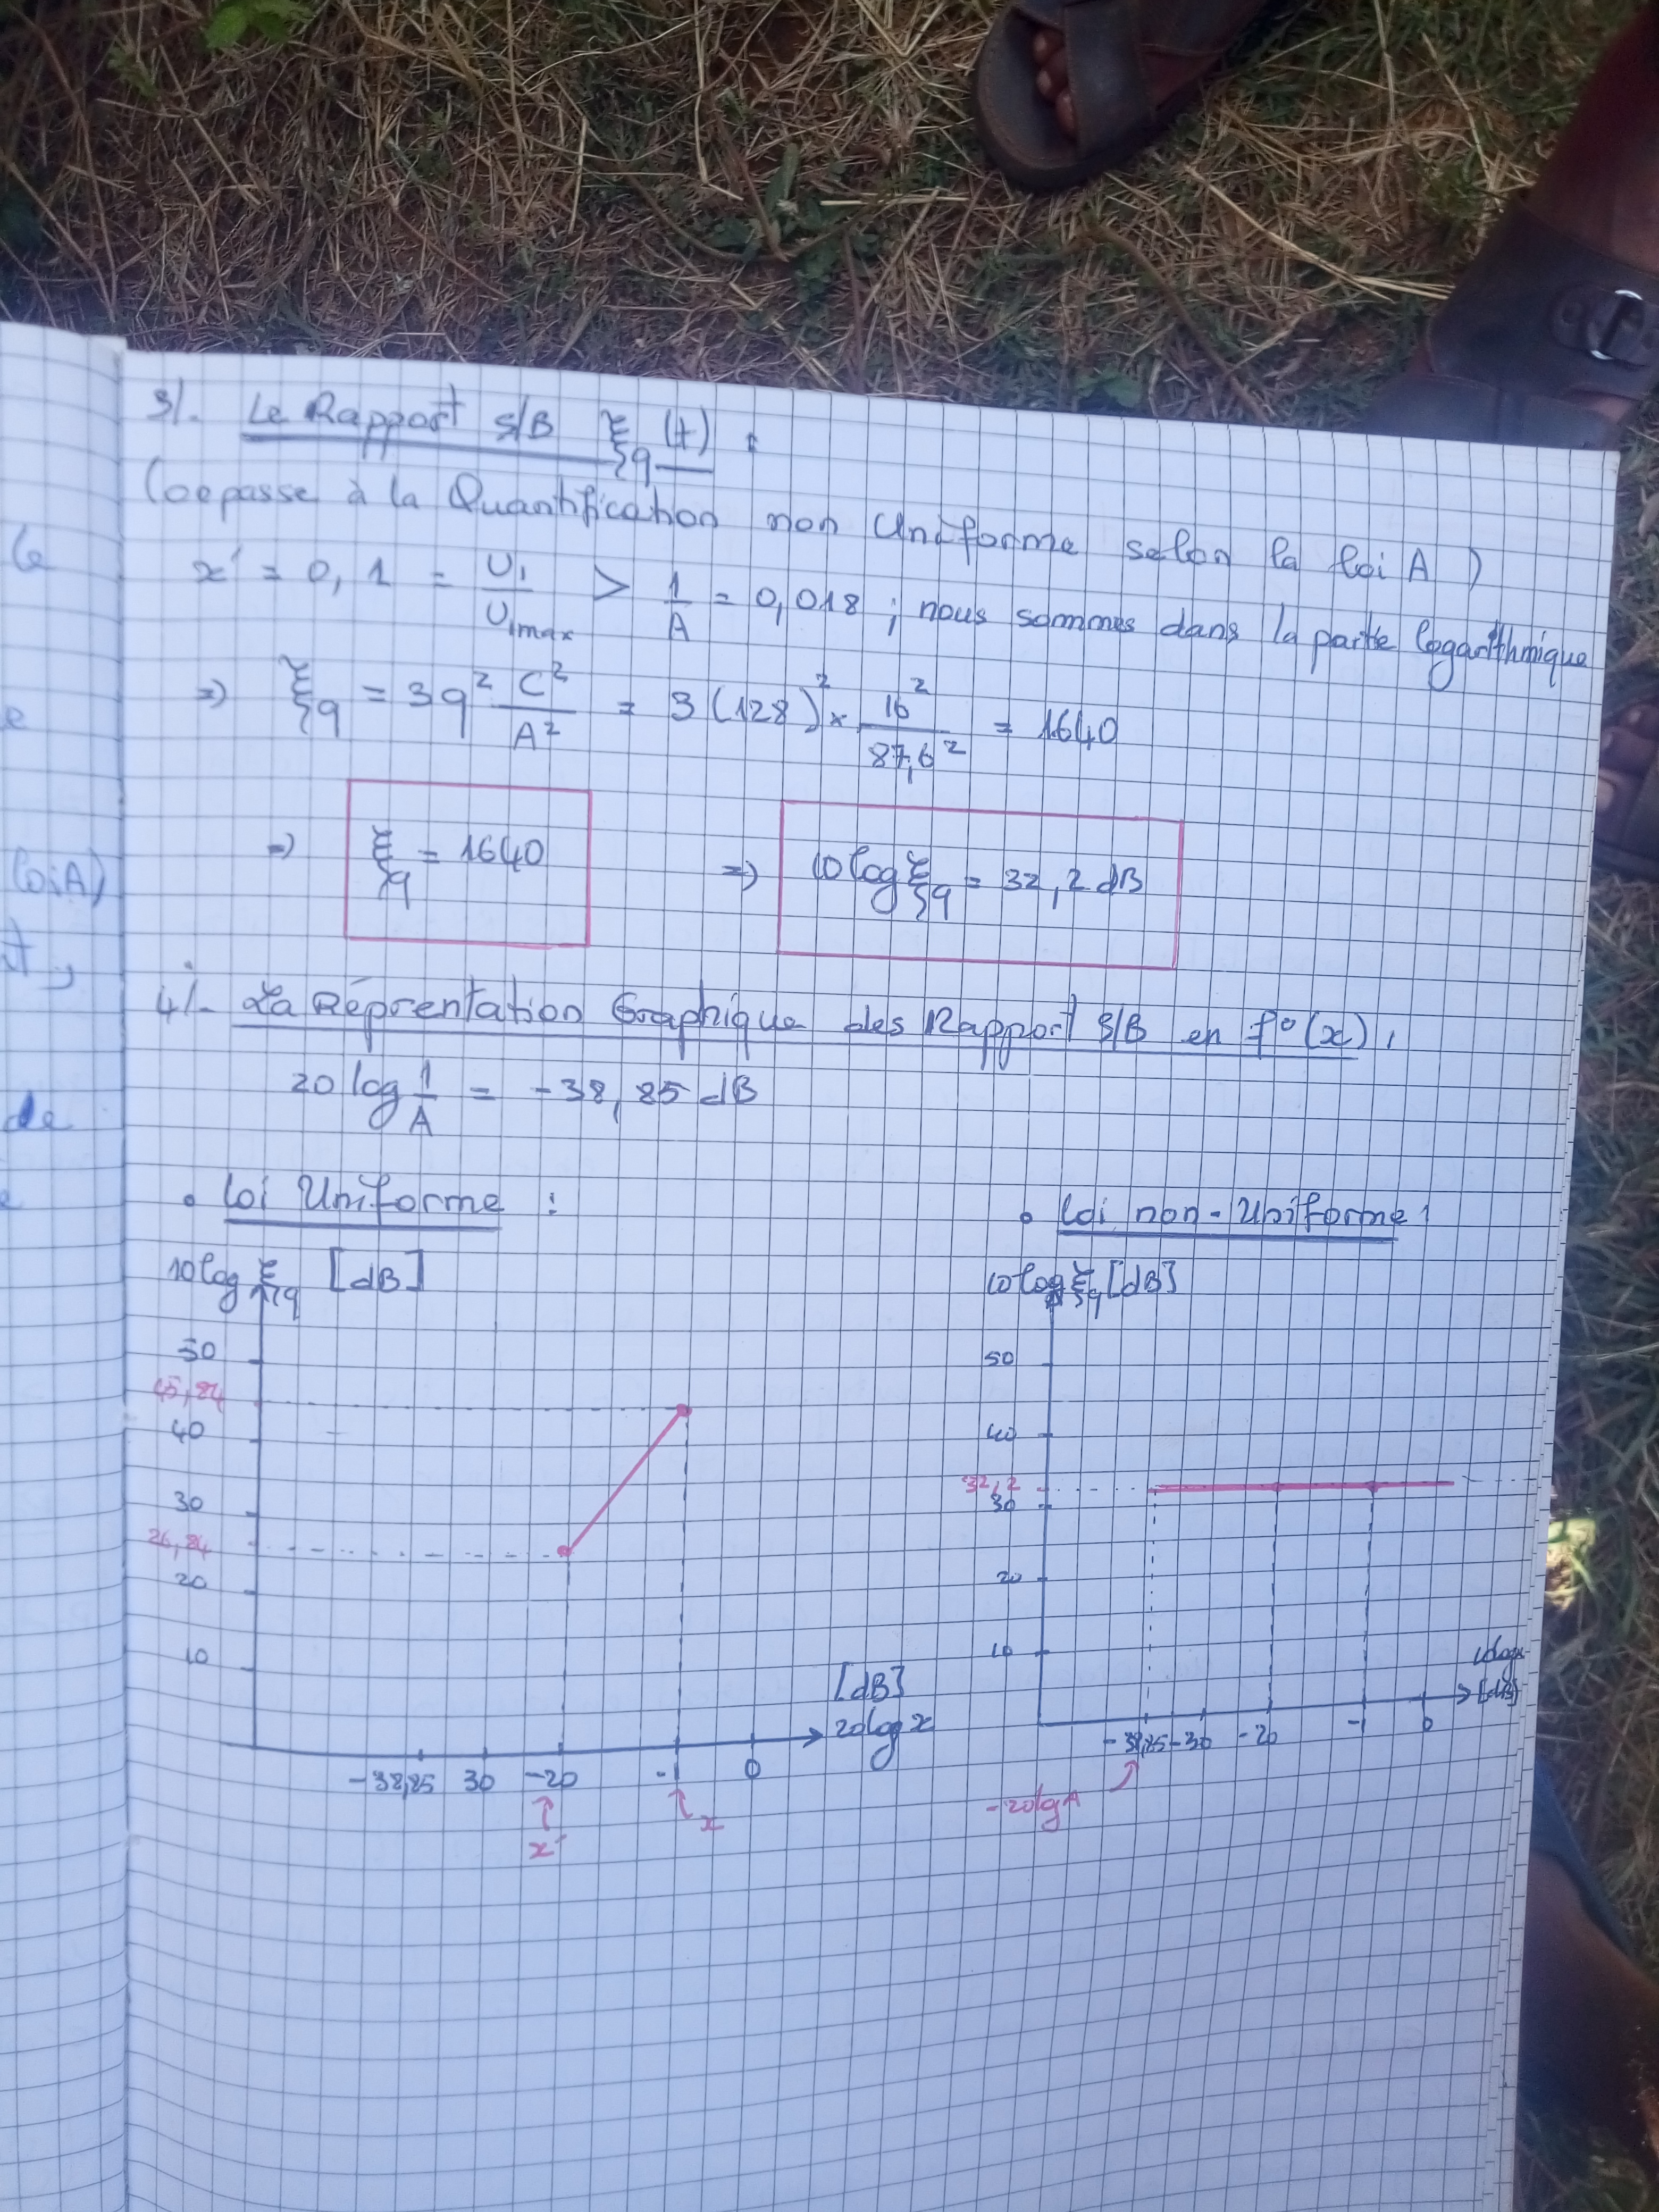 3/. Le Rapport S/B ξq (t) :
(oepasse à la Quantification non Uniforme selon la loi A )
x' = 0,1 = U1/U1max > 1/A = 0,018 ; nous sommes dans la partie logarithmique
=> ξq = 3q² C²/A² = 3(128)² × 16²/87,6² = 1640
=> ξq = 1640 => 10 log ξq = 32,2 dB
4/- La Réprentation Graphique des Rapport S/B en f°(x) ,
20 log 1/A = -38,85 dB
• loi Uniforme : • loi non-Uniforme !
10log ξq [dB] 10log ξq [dB]
50
45,84
40
30
26,84
20
10
[dB]
20log x
-38,85 30 -20 -1 0
x' x
50
40
32,2
30
20
10
[dB]
-38,85 -30 -20 -1 0
-20lgA
le
e
loiA)
t,
de
e